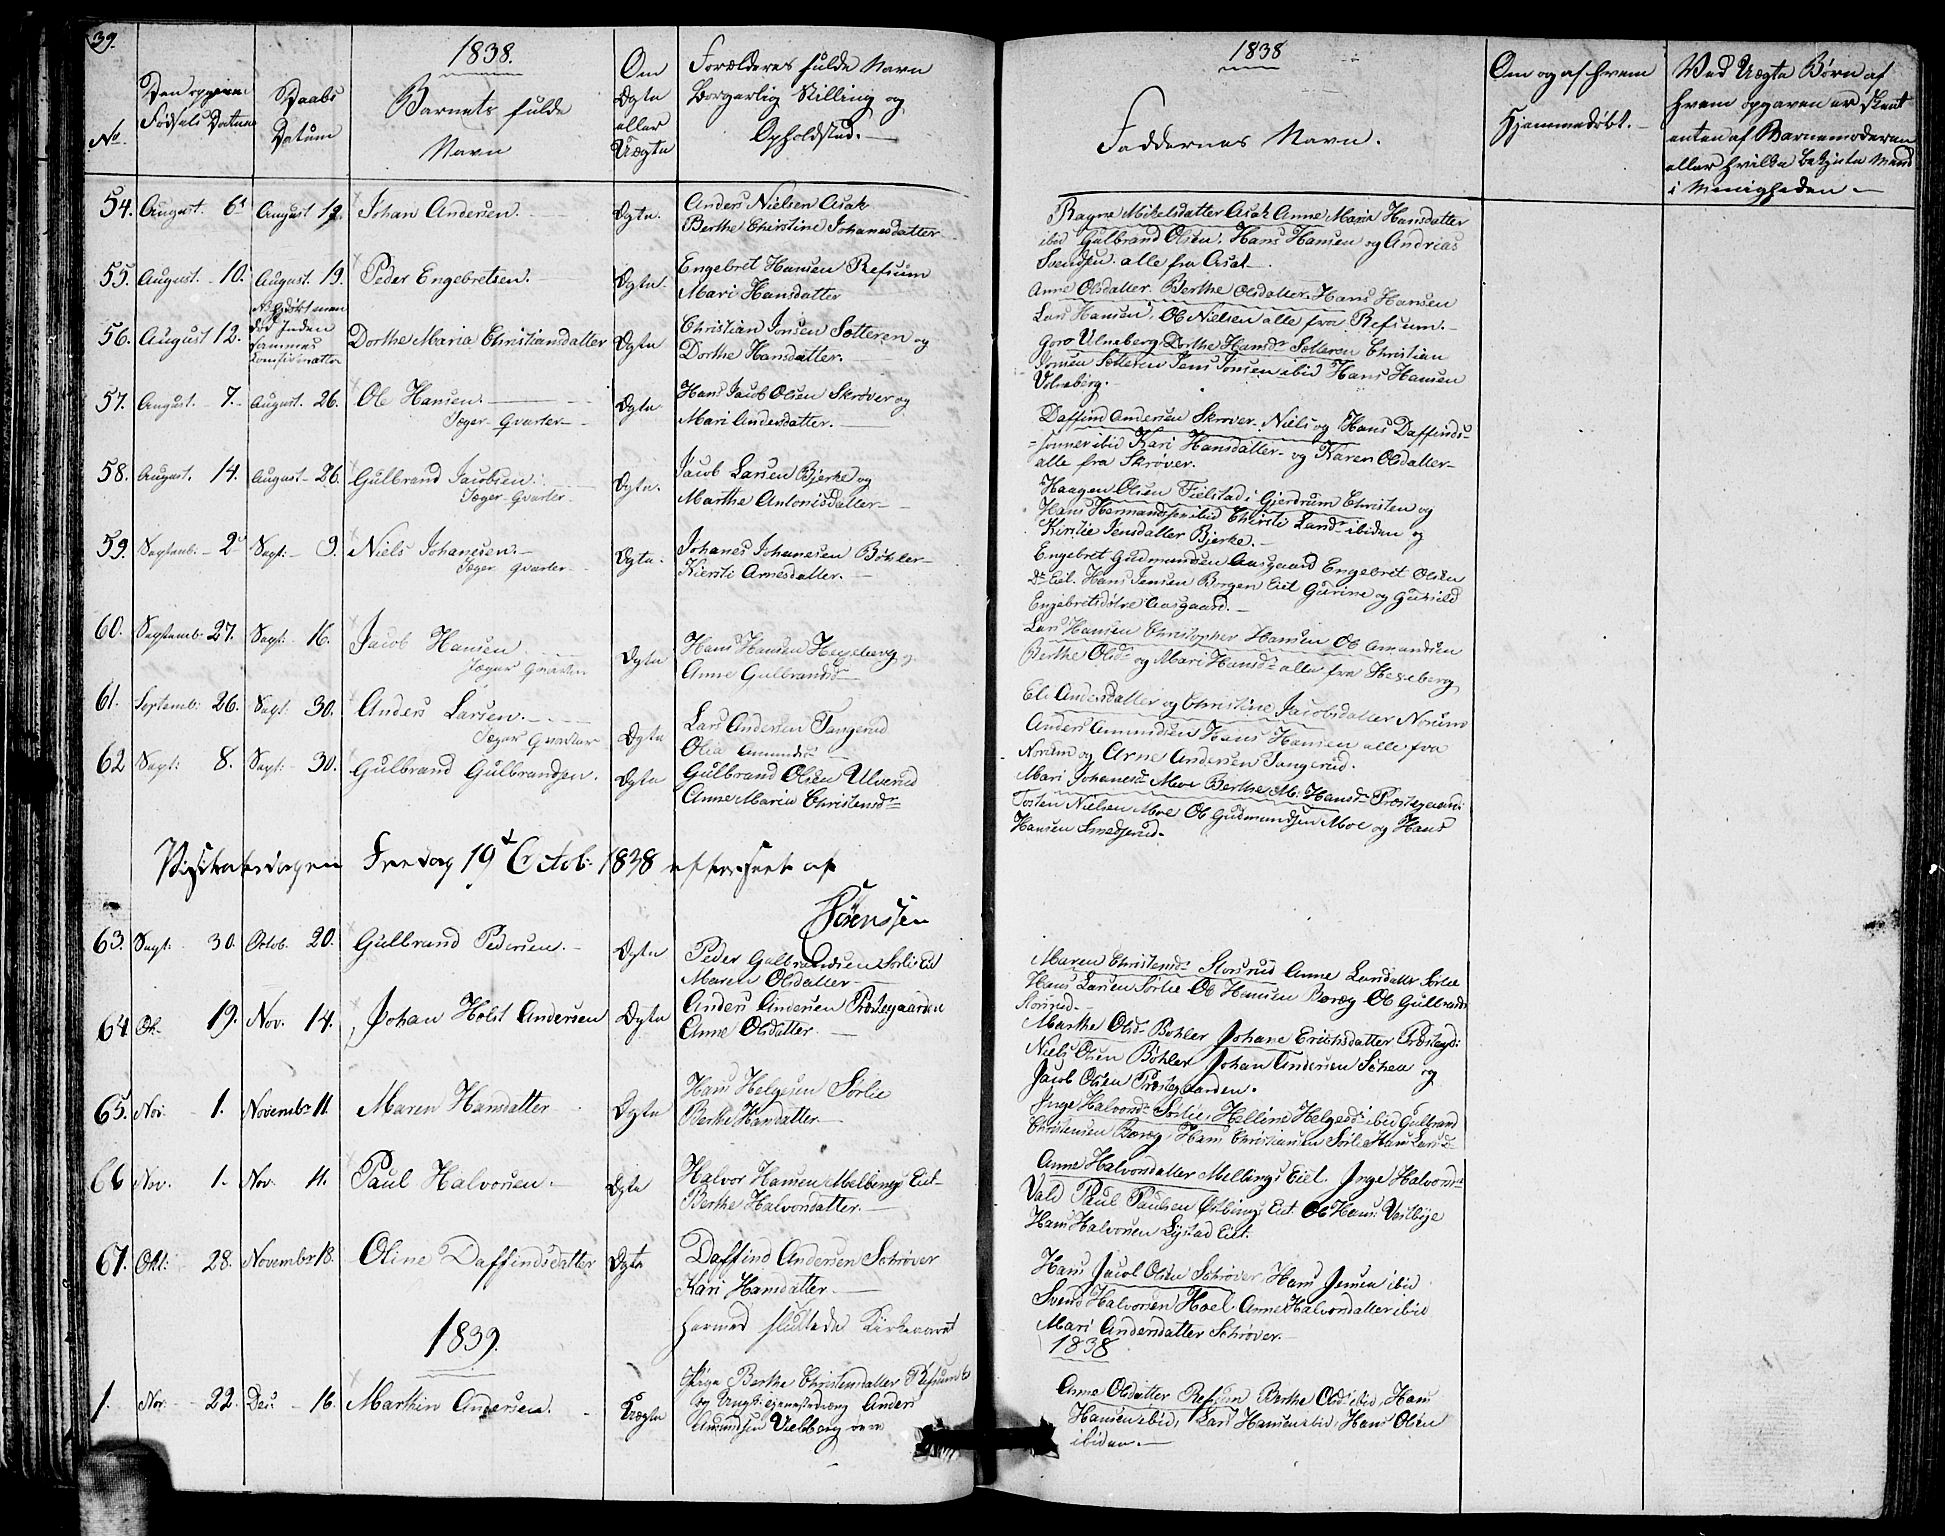 39.
1838.
No
Den opgivne
Fødsels Datum
Daabs
Datum
Barnets fulde
Navn
Om
Ægte
eller
Uægte
Forældres fulde Navn
Borgerlig Stilling og
Opholdsted.
54. August. 6t August 12. Johan Andersen. Ægte. Anders Nielsen Asak
Berthe Christine Johanesdatter
55. August. 10. August. 19. Peder Engebretsen. Ægte. Engebret Hansen Refsum
Mari Hansdatter
56. August 12. død inden
Dorthe Maria Christiansdatter Ægte Christian Jonsen Sætteren og
Dorthe Hansdatter.
57. August. 7. August. 26. Ole Hansen. Ægte. Hans Jacob Olsen Skrøver og
Jæger Qvarter Mari Andersdatter.
58. August. 14. August 26. Gulbrand Jacobsen. Ægte. Jacob Larsen Bjerke og
Jæger Qvarter Marthe Antonisdatter
59. Septemb. 2 Sept: 9. Niels Johanesen. Ægte. Johanes Johanesen Bøhler
Jæger Qvarter Kiersti Arnesdatter.
60. Septemb. 27. Sept: 16. Jacob Hansen Ægte Hans Hansen Hexeberg og
Jæger Qvarter Anne Gulbrandsdr
61. Septemb: 26. Sept. 30. Anders Larsen. Ægte Lars Andersen Tangerud
Jæger Qvarter Olia Amundsdr
62 Sept: 8. Sept: 30. Gulbrand Gulbrandsen. Ægte Gulbrand Olsen Ulverud
Anne Maria Christensdr
Visitatsdagen Fredag 19d Octob. 1838 efterseet af
Sørenssen
63. Sept: 30. Octob. 20. Gulbrand Pedersen. Ægte Peder Gulbrandsen Sørli Eiet
Maren Olsdatter
64 Ok. 19. Nov. 14. Johan Holst Andersen Ægte Anders Andersen Præstegaarden
Anne Olsdatter
65. Nov. 1. Novembr 11. Maren Hansdatter Ægte Hans Helgesen Sørlie
Berthe Hansdatter
66 Nov. 1. Nov. 11. Paul Halvorsen. Ægte Halvor Hansen Mellings Eiet
Berthe Halvorsdatter.
67. Okt: 28. November 18. Oline Daffindsdatter Ægte Daffind Andersen Schrøver
Kari Hansdatter.
hermed sluttede Kirkeaaret
1839.
1. Nov. 22. Dec. 16. Marthin Andersen. Uægte Pige Berthe Christensdatter Refsum
og Ungk: Anders
Amundsen
1838
Faddernes Navn.
Om og af hvem
Hjemmedøbt.
Ved Uægte Børn af
hvem opgaven er skeet
enten af Barnemoderen
eller hvilke bekjente Mænd
i Menigheden.
Ragne Mikelsdatter Asak Anne Maria Hansdatter
ibid Gulbrand Olsen, Hans Hansen og Andrias
Svendsen alle fra Asak
Anne Olsdatter. Berthe Olsdatter. Hans Hansen
Lars Hansen, Ole Nielsen alle fra Refsum.
Goro Ulneberg Dorthe Hansdr Sætteren Christian
Jonsen Sætteren Jens Jonsen ibid Hans Hansen
Ulneberg.
Daffind Andersen Skrøver. Niels og Hans Daffinds-
sønner ibid Kari Hansdatter og Karen Olsdatter
alle fra Skrøver.
Haagen Olsen Fielstad i Gierdrum Christen og
Hans Hermandssen ibid Christi Larsdr ibiden og
Kirstie Jensdatter Bjerke.
Engebret Gudmundsen Aasgaard Engebret Olsen
Do Eiet. Hans Jensen Borgen Eiet Gurine og Gunild
Engebretsdøtre Aasgaard.
Lars Hansen Christopher Hansen Ole Amundsen
Berthe Olsdr og Mari Hansdr alle fra Hexeberg
Eli Andersdatter og Christine Jacobsdatter Norum
Anders Amundsen Hans Hansen alle fra
Norum og Arne Andersen Tangerud.
Mari Johanesdr Moe Berthe M. Hansdr Præstegaard:
Tosten Nielsen Moe Ole Gudmundsen Moe og Hans
Hansen Smedsrud.
Maren Christensdr Storsrud Anne Larsdatter Sørlie
Hans Larsen Sørlie Ole Hansen Baræg Ole Gulbrands
Storsrud
Marthe Olsdr Bøhler Johane Erichsdatter Præstegd:
Niels Olsen Bøhler, Johan Andersen Scheen og
Jacob Olsen Præstegaarden.
Inge Halvorsdr Sørlie, Helline Helgesdr ibid Gulbrand
Christensen Baræg, Hans Christiansen Sørlie Hans Larsen
Anne Halvorsdatter Mellings Eiet. Inge Halvorsdr
Vald Paul Paulsen Østbings Eiet. Ole Hans. Vestbye
Hans Halvorsen Lystad Eiet.
Hans Jacob Olsen Schrøver, Hans Jensen ibid
Svend Halvorsen Hoel Anne Halvorsdatter ibid
Mari Andersdatter Schrøver.
1838
Anne Olsdatter Refsum Berthe Olsdr ibid, Hans
Hansen ibid, Lars Hansen ibid, Hans Olsen
ibiden.